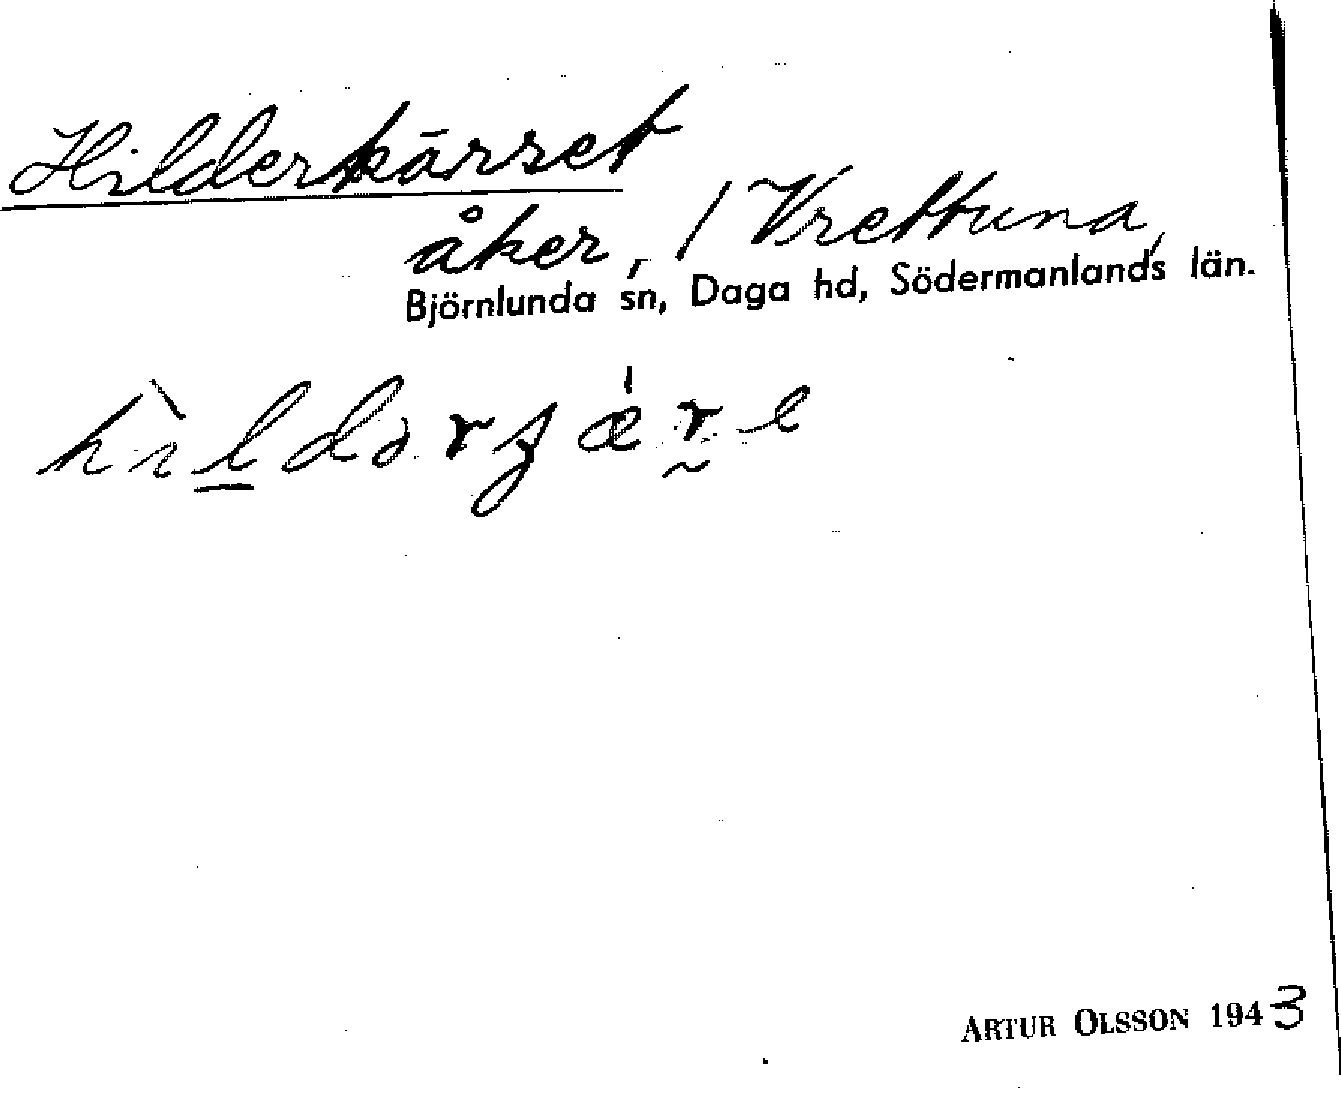 Hilderkärret
åker, / Vrettuna,
Björnlunda sn, Daga hd, Södermanlands län.
ARTUR OLSSON 1943